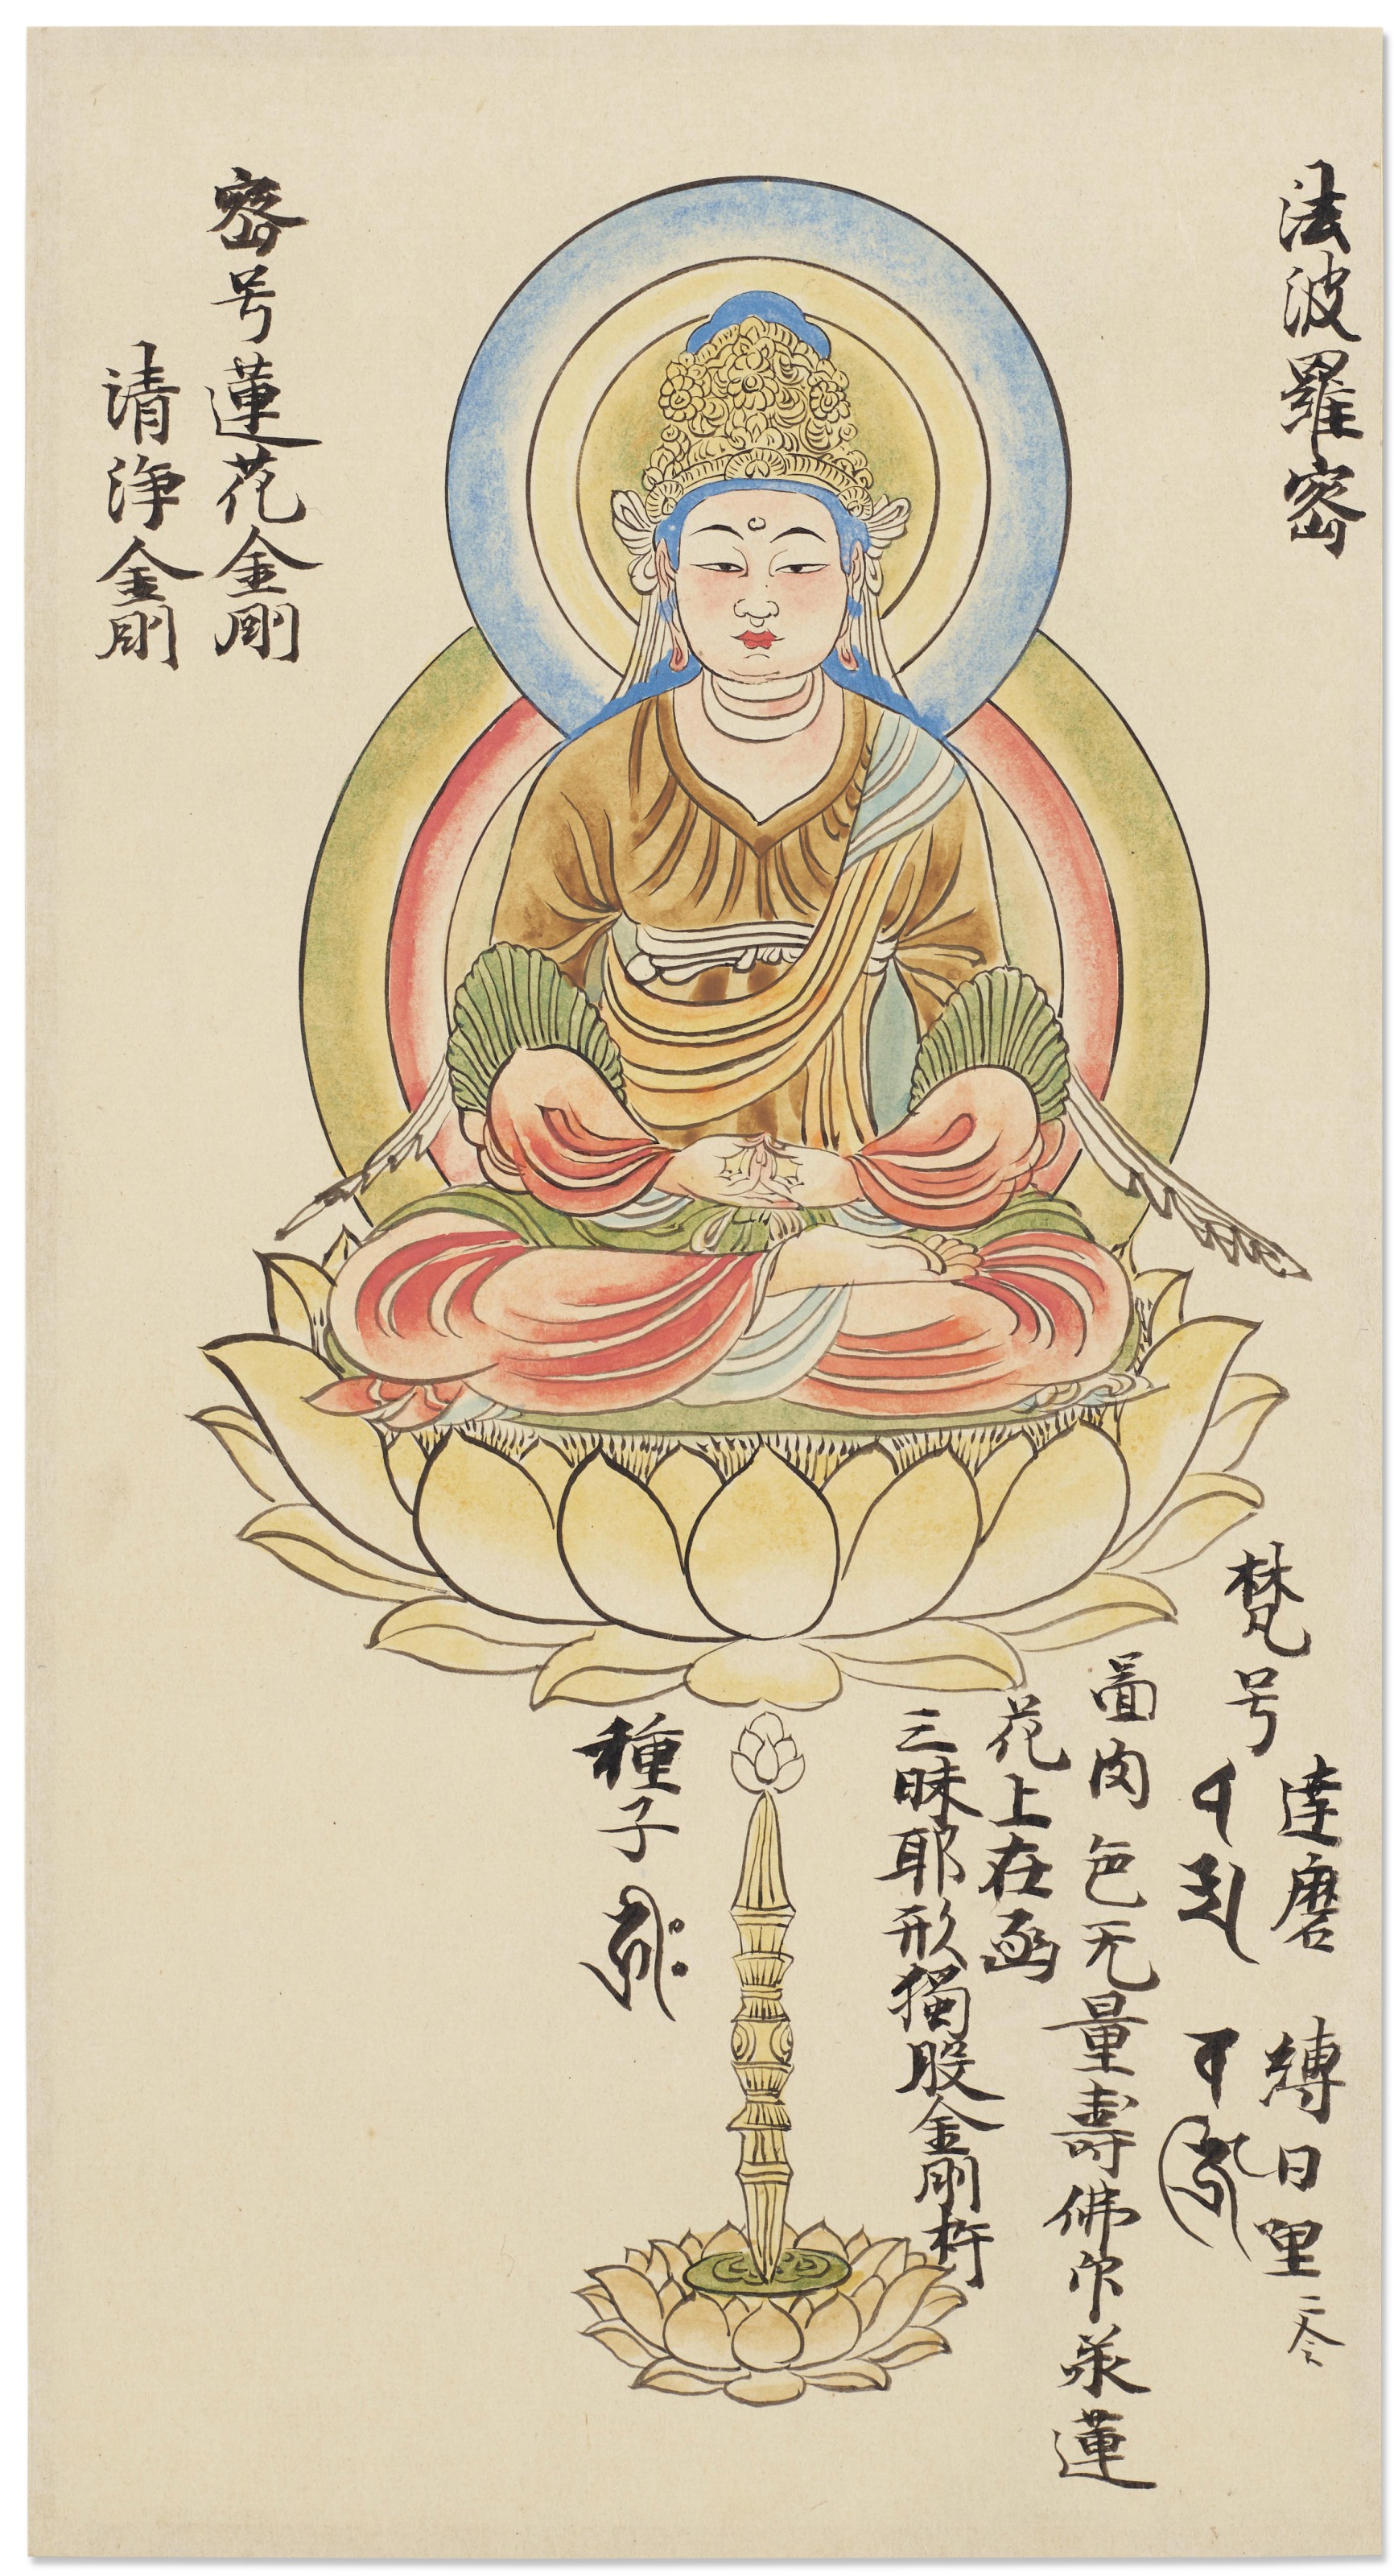 法波羅密
梵号
達磨 縛日里二合
啚肉色无量壽佛印承蓮
花上在函
三昧耶形獨股金剛杵
種子
密号蓮花金剛
清浄金剛